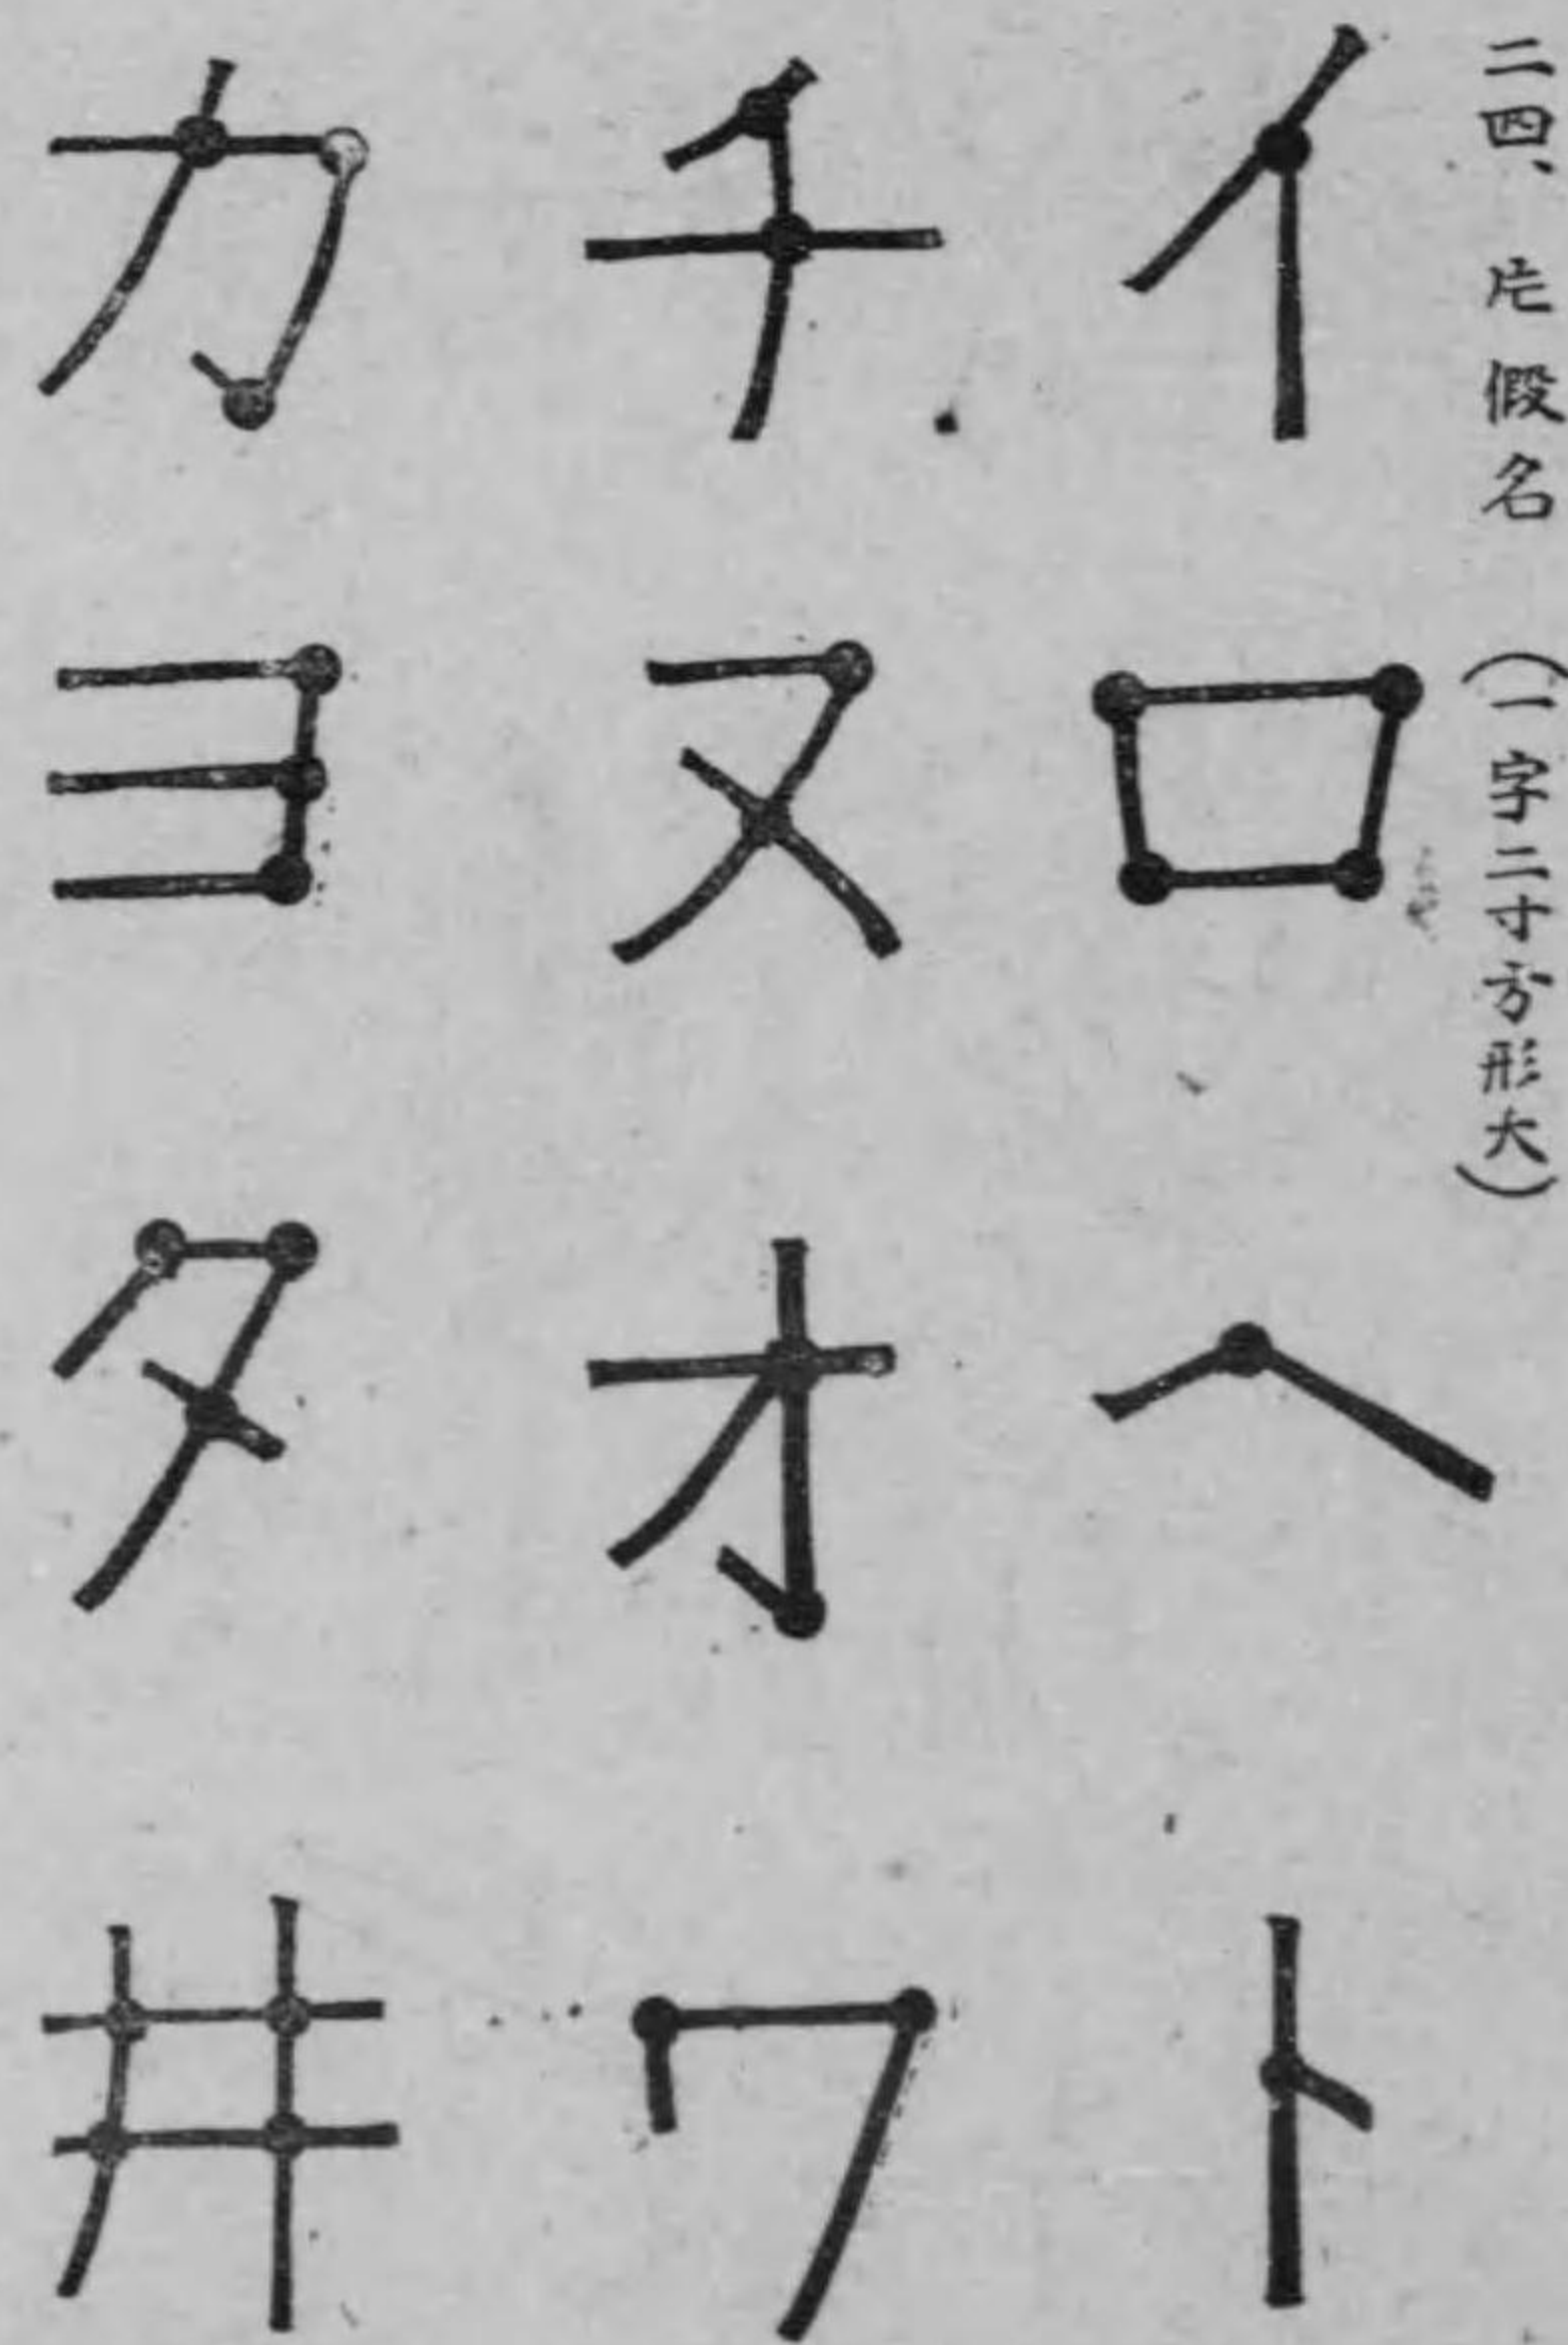 二四、片假名(一字二寸方形大)
イロヘト
チヌオワ
カヨタ井